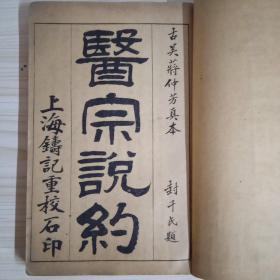 古吳蔣仲芳真本
醫宗說約
封千民題
上海鑄記重校石印